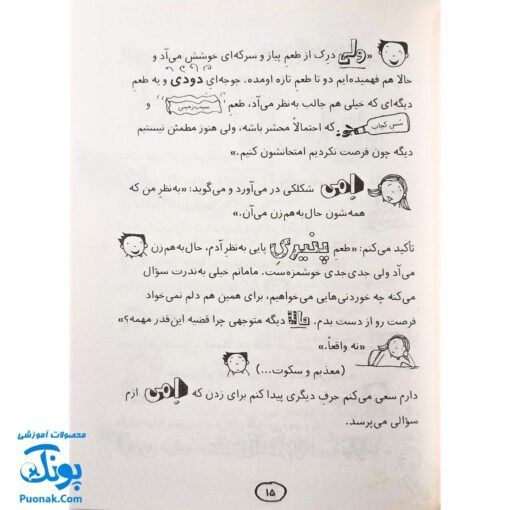 «ولی درک از طعمِ پیاز و سرکه‌ای خوشش می‌آد و
حالا هم فهمیده‌ایم دو تا طعمِ تازه اومده. جوجه‌ایِ دودی و یه طعمِ
دیگه‌ای که خیلی هم جالب به‌نظر می‌آد، طعمِ سیب‌زمینی و
سُسِ کچاپ که احتمالاً محشر باشه، ولی هنوز مطمئن نیستیم
دیگه چون فرصت نکردیم امتحانشون کنیم.»
اِمی شکلکی در می‌آورد و می‌گوید: «به‌نظرِ من که
همه‌شون حال‌به‌هم‌زن می‌آن.»
تأکید می‌کنم: «طعمِ پنیریِ پایی به‌نظرِ آدم، حال‌به‌هم‌زن
می‌آد ولی جدی‌جدی خوشمزه‌ست. مامانم خیلی به‌ندرت سؤال
می‌کنه چه خوردنی‌هایی می‌خواهیم، برای همین هم دلم نمی‌خواد
فرصت رو از دست بدم. حالا دیگه متوجهی چرا قضیه این‌قدر مهمه؟»
«نه واقعاً.»
(معذبم و سکوت...)
دارم سعی می‌کنم حرفِ دیگری پیدا کنم برای زدن که اِمی ازم
سؤالی می‌پرسد.
۱۵
محصولات آموزشی
پونک
Puonak.Com